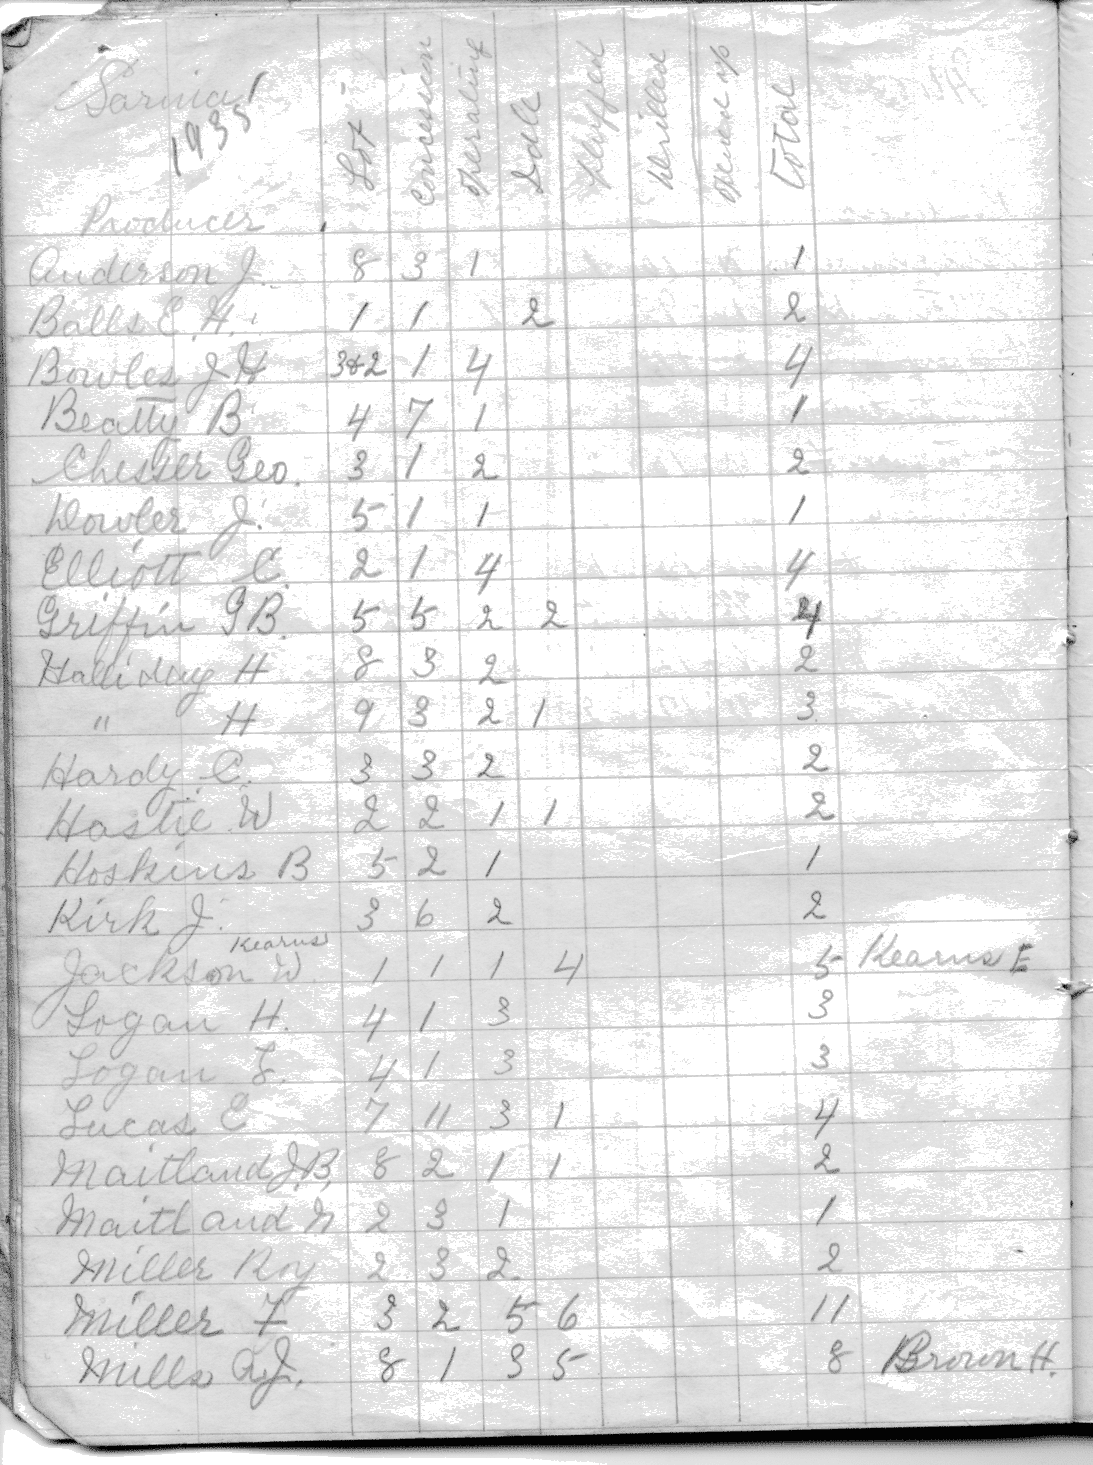 Sarnia
1935
Producer Lot Concession Operating Idle Plugged Drilled Opened up Total
Anderson J. 8 3 1 1
Balls E. H. 1 1 2 2
Bowles J H 3&2 1 4 4
Beatty B 4 7 1 1
Chester Geo. 3 1 2 2
Dowler J. 5 1 1 1
Elliott C. 2 1 4 4
Griffin G B. 5 5 2 2 4
Halliday H 8 3 2 2
" H 9 3 2 1 3
Hardy C. 3 3 2 2
Hastie W 2 2 1 1 2
Hoskins B 5 2 1 1
Kirk J. 3 6 2 2
Kearns
Jackson W. 1 1 1 4 5 Kearns E
Logan H. 4 1 3 3
Logan 4 1 3 3
Lucas E 7 11 3 1 4
Maitland J.B. 8 2 1 1 2
Maitland 2 3 1 1
Miller Roy 2 3 2 2
Miller F 3 2 5 6 11
Mills R.J. 8 1 3 5 8 Brown H.